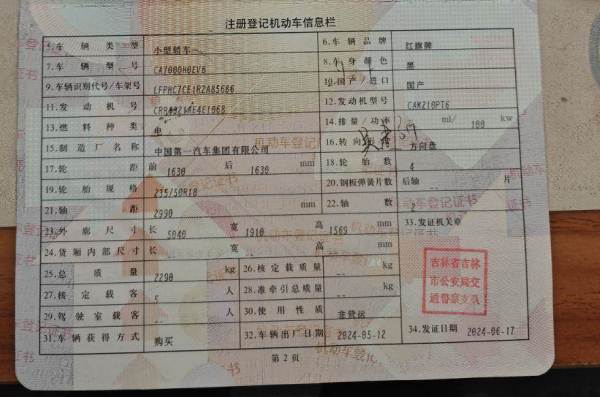 注册登记机动车信息栏
5.车辆类型 小型轿车 6.车辆品牌 红旗牌
7.车辆型号 CA7000H0EV6 8.车身颜色 黑
9.车辆识别代号/车架号 LFPHC7CE1R2A85666 10.国产/进口 国产
11.发动机号 12.发动机型号 CAM210PT6
13.燃料种类 电 14.排量/功率 ml/ 180 kw
15.制造厂名称 中国第一汽车集团有限公司 16.转向形式 方向盘
17.轮距 前 1630 后 1630 mm 18.轮胎数 4
19.轮胎规格 235/50R18 20.钢板弹簧片数 后轴 -- 片
21.轴距 2990 mm 22.轴数 2
23.外廓尺寸 长 5040 宽 1910 高 1569 mm 33.发证机关章
24.货厢内部尺寸 长 -- 宽 -- 高 -- mm
25.总质量 2290 kg 26.核定载质量 -- kg
27.核定载客 5 人 28.准牵引总质量 -- kg
29.驾驶室载客 -- 人 30.使用性质 非营运
31.车辆获得方式 购买 32.车辆出厂日期 2024-05-12 34.发证日期 2024-06-17
吉林省吉林
市公安局交
通警察支队
第2页